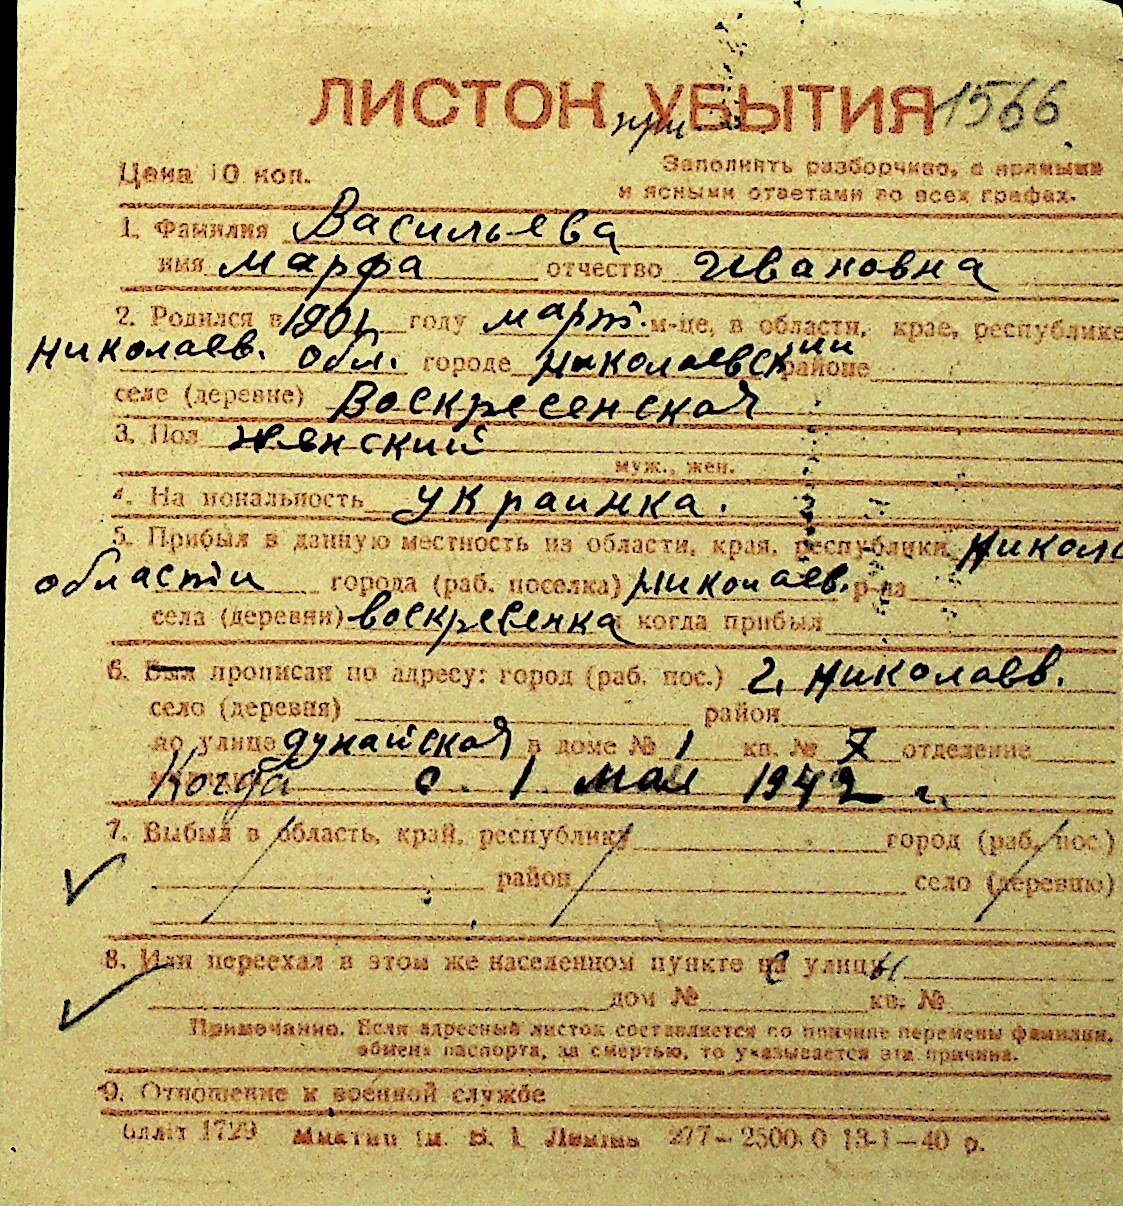 ЛИСТОК при УБЫТИЯ 1566
Цена 10 коп.
Заполнять разборчиво, с прямыми
и ясными ответами во всех графах.
1. Фамилия Васильева
имя Марфа отчество Ивановна
2. Родился в 1901 году март. м-це, в области, крае, республике
Николаев. обл. городе николаевский районе
селе (деревне) Воскресенская
3. Пол женский
муж., жен.
4. На иональность украинка.
5. Прибыл в данную местность из области, края, республики Никол
области города (раб. поселка) Николаев. р-на
села (деревни) воскресенка когда прибыл
6. Был прописан по адресу: город (раб. пос.) г. Николаев.
село (деревня) район
по улице дунайской в доме № 1 кв. № 7 отделение
Когда с. 1 мая 1942 г.
7. Выбыл в область, край, республику город (раб. пос.)
район село (деревню)
8. Или переехал в этом же населенном пункте с улицы
дом № кв. №
Примечание. Если адресный листок составляется по причине перемены фамилии,
обмена паспорта, за смертью, то указывается эта причина.
9. Отношение к военной службе
1729 ім. В. І. Леніна 277—2500.0 13-1—40 р.